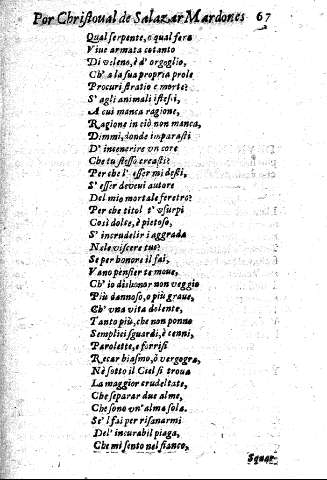 Por Christoual de Salazar Mardones 67
Qual serpente, o qual fera
Viue armata cotanto
Di veleno, è d' orgoglio,
Ch' a la sua propria prole
Procuri stratio e morte?
S' agli animali istessi,
A cui manca ragione,
Ragione in ciò non manca,
Dimmi, donde imparasti
D' incenerire vn core
Che tu stesso creasti?
Per che l' esser mi desti,
S' esser deueui autore
Del mio mortale feretro?
Per che titol t' vsurpi
Così dolce, è pietoso,
S' incrudelir i aggrada
Nele viscere tue?
Se per honore il fai,
Vano pensier te moue,
Ch' io dishonor non veggio
Più dannoso, o piu graue,
Ch' vna vita dolente,
Tanto più, che non ponno
Semplici sguardi, è cenni,
Parolette, e sorrisi
Recar biasmo, ò vergogra,
Nè sotto il Ciel si troua
La maggior crudeltate,
Che separar due alme,
Che sono vn' alma sola.
Se' l fai per risanarmi
Del' incurabil piaga,
Che mi sento nel fianco,
Squar-